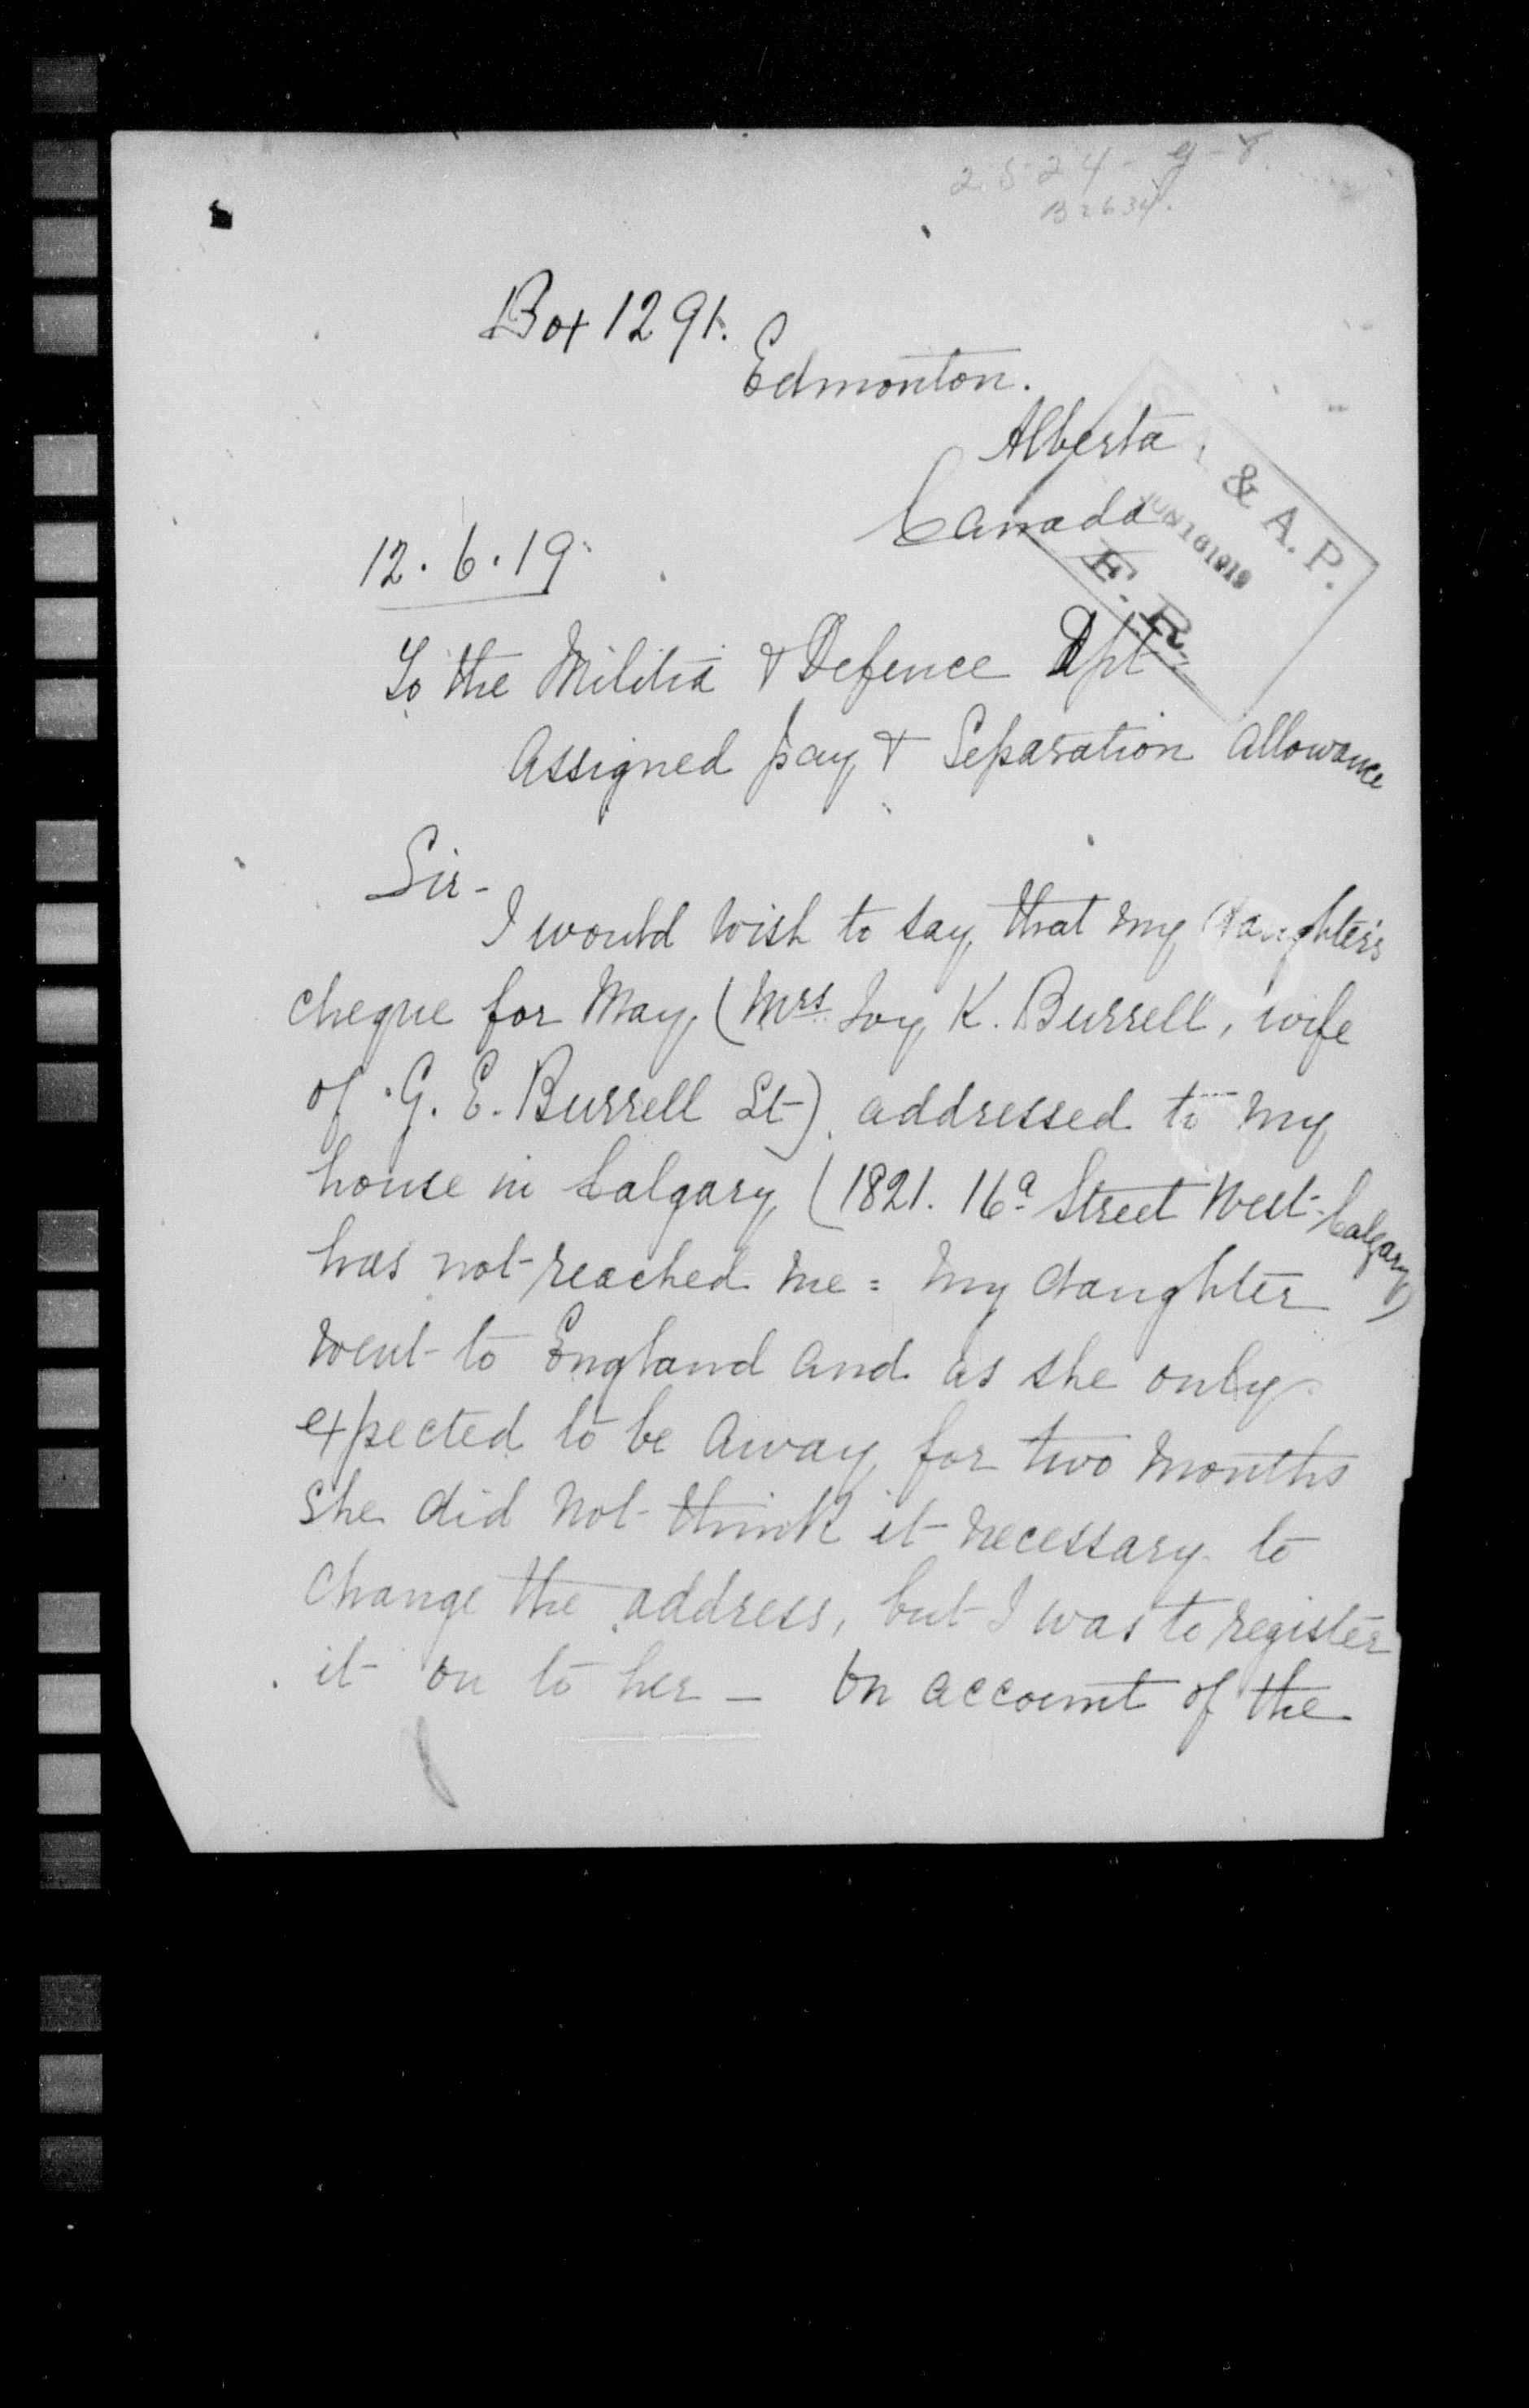 2524-G-8
B2634.
Box 1291.
Edmonton.
Alberta.
Canada
& A. P.
JUN 16 1919
F. R.
12.6.19.
To the Militia & Defence Dpt
Assigned pay & Separation Allowance
Sir-
I would wish to say that my daughter's
cheque for May, (Mrs. Ivy K. Burrell, wife
of G. E. Burrell Lt) addressed to my
house in Calgary (1821. 16a Street West-Calgary)
has not reached me = My daughter
went to England and as she only
expected to be away for two months
she did not think it necessary to
change the address, but I was to register
it on to her — On account of the